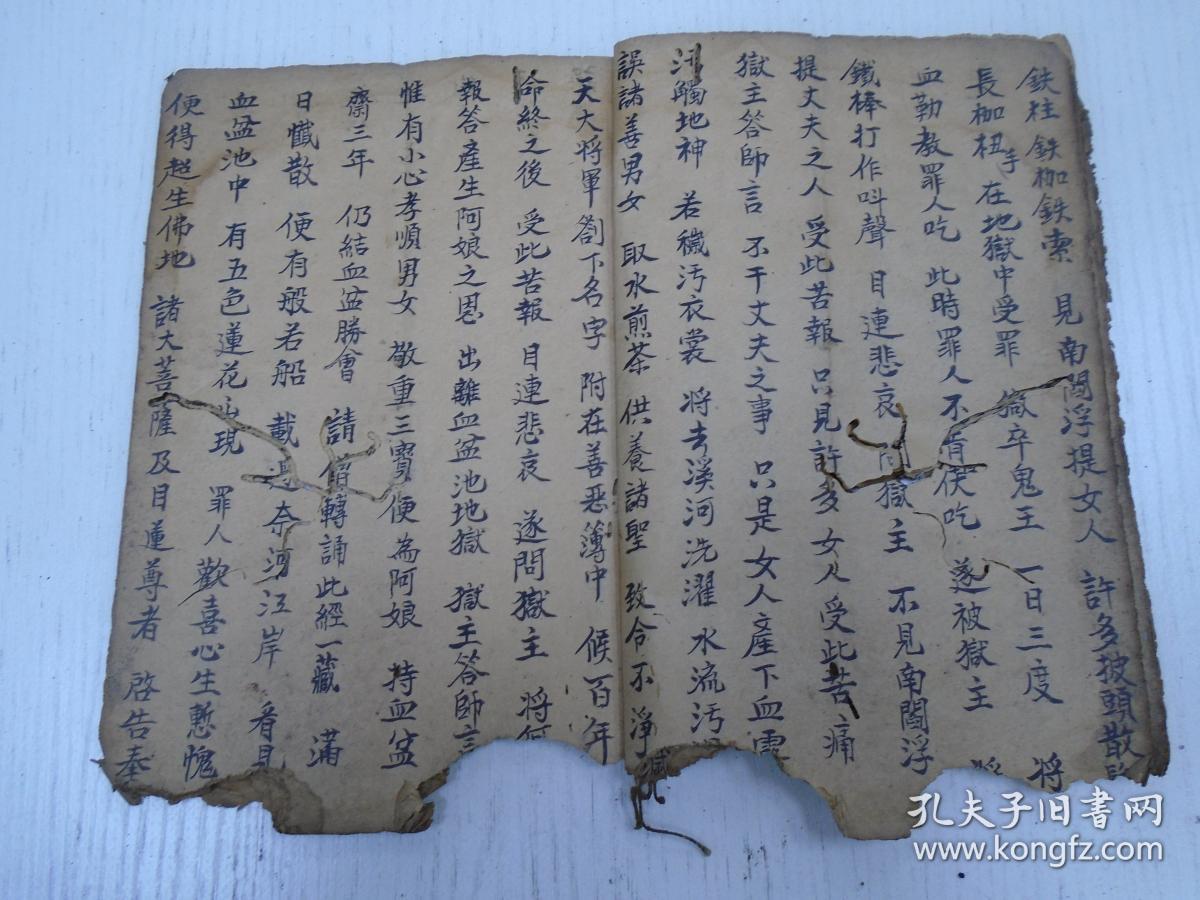 鉄柱 鉄枷鉄索 見南閻浮提女人 許多披頭散
長枷杻手 在地獄中受罪 獄卒鬼王 一日三度 将
血勒教罪人吃 此時罪人不肯伏吃 遂被獄主 将
鐵棒打作呌聲 目連悲哀 問獄主 不見南閻浮
提丈夫之人 受此苦報 只見許多女人受此苦痛
獄主答師言 不干丈夫之事 只是女人產下血露
汚觸地神 若穢汚衣裳 将去溪河洗濯 水流汚
誤諸善男女 取水煎茶 供養諸聖 致令不淨
天大将軍劄下名字 附在善惡薄中 候百年
命終之後 受此苦報 目連悲哀 遂問獄主 将何
報答產生阿娘之恩 出離血盆池地獄 獄主答師言
惟有小心孝順男女 敬重三寳便為阿娘 持血盆
齋三年 仍結血盆勝會 請僧轉誦此經一藏 滿
日懺散 便有般若船 載過奈河江岸 看見
血盆池中 有五色蓮花出現 罪人歡喜心生慙愧
便得超生佛地 諸大菩薩及目蓮尊者 啓告奉
孔夫子旧书网
www.kongfz.com